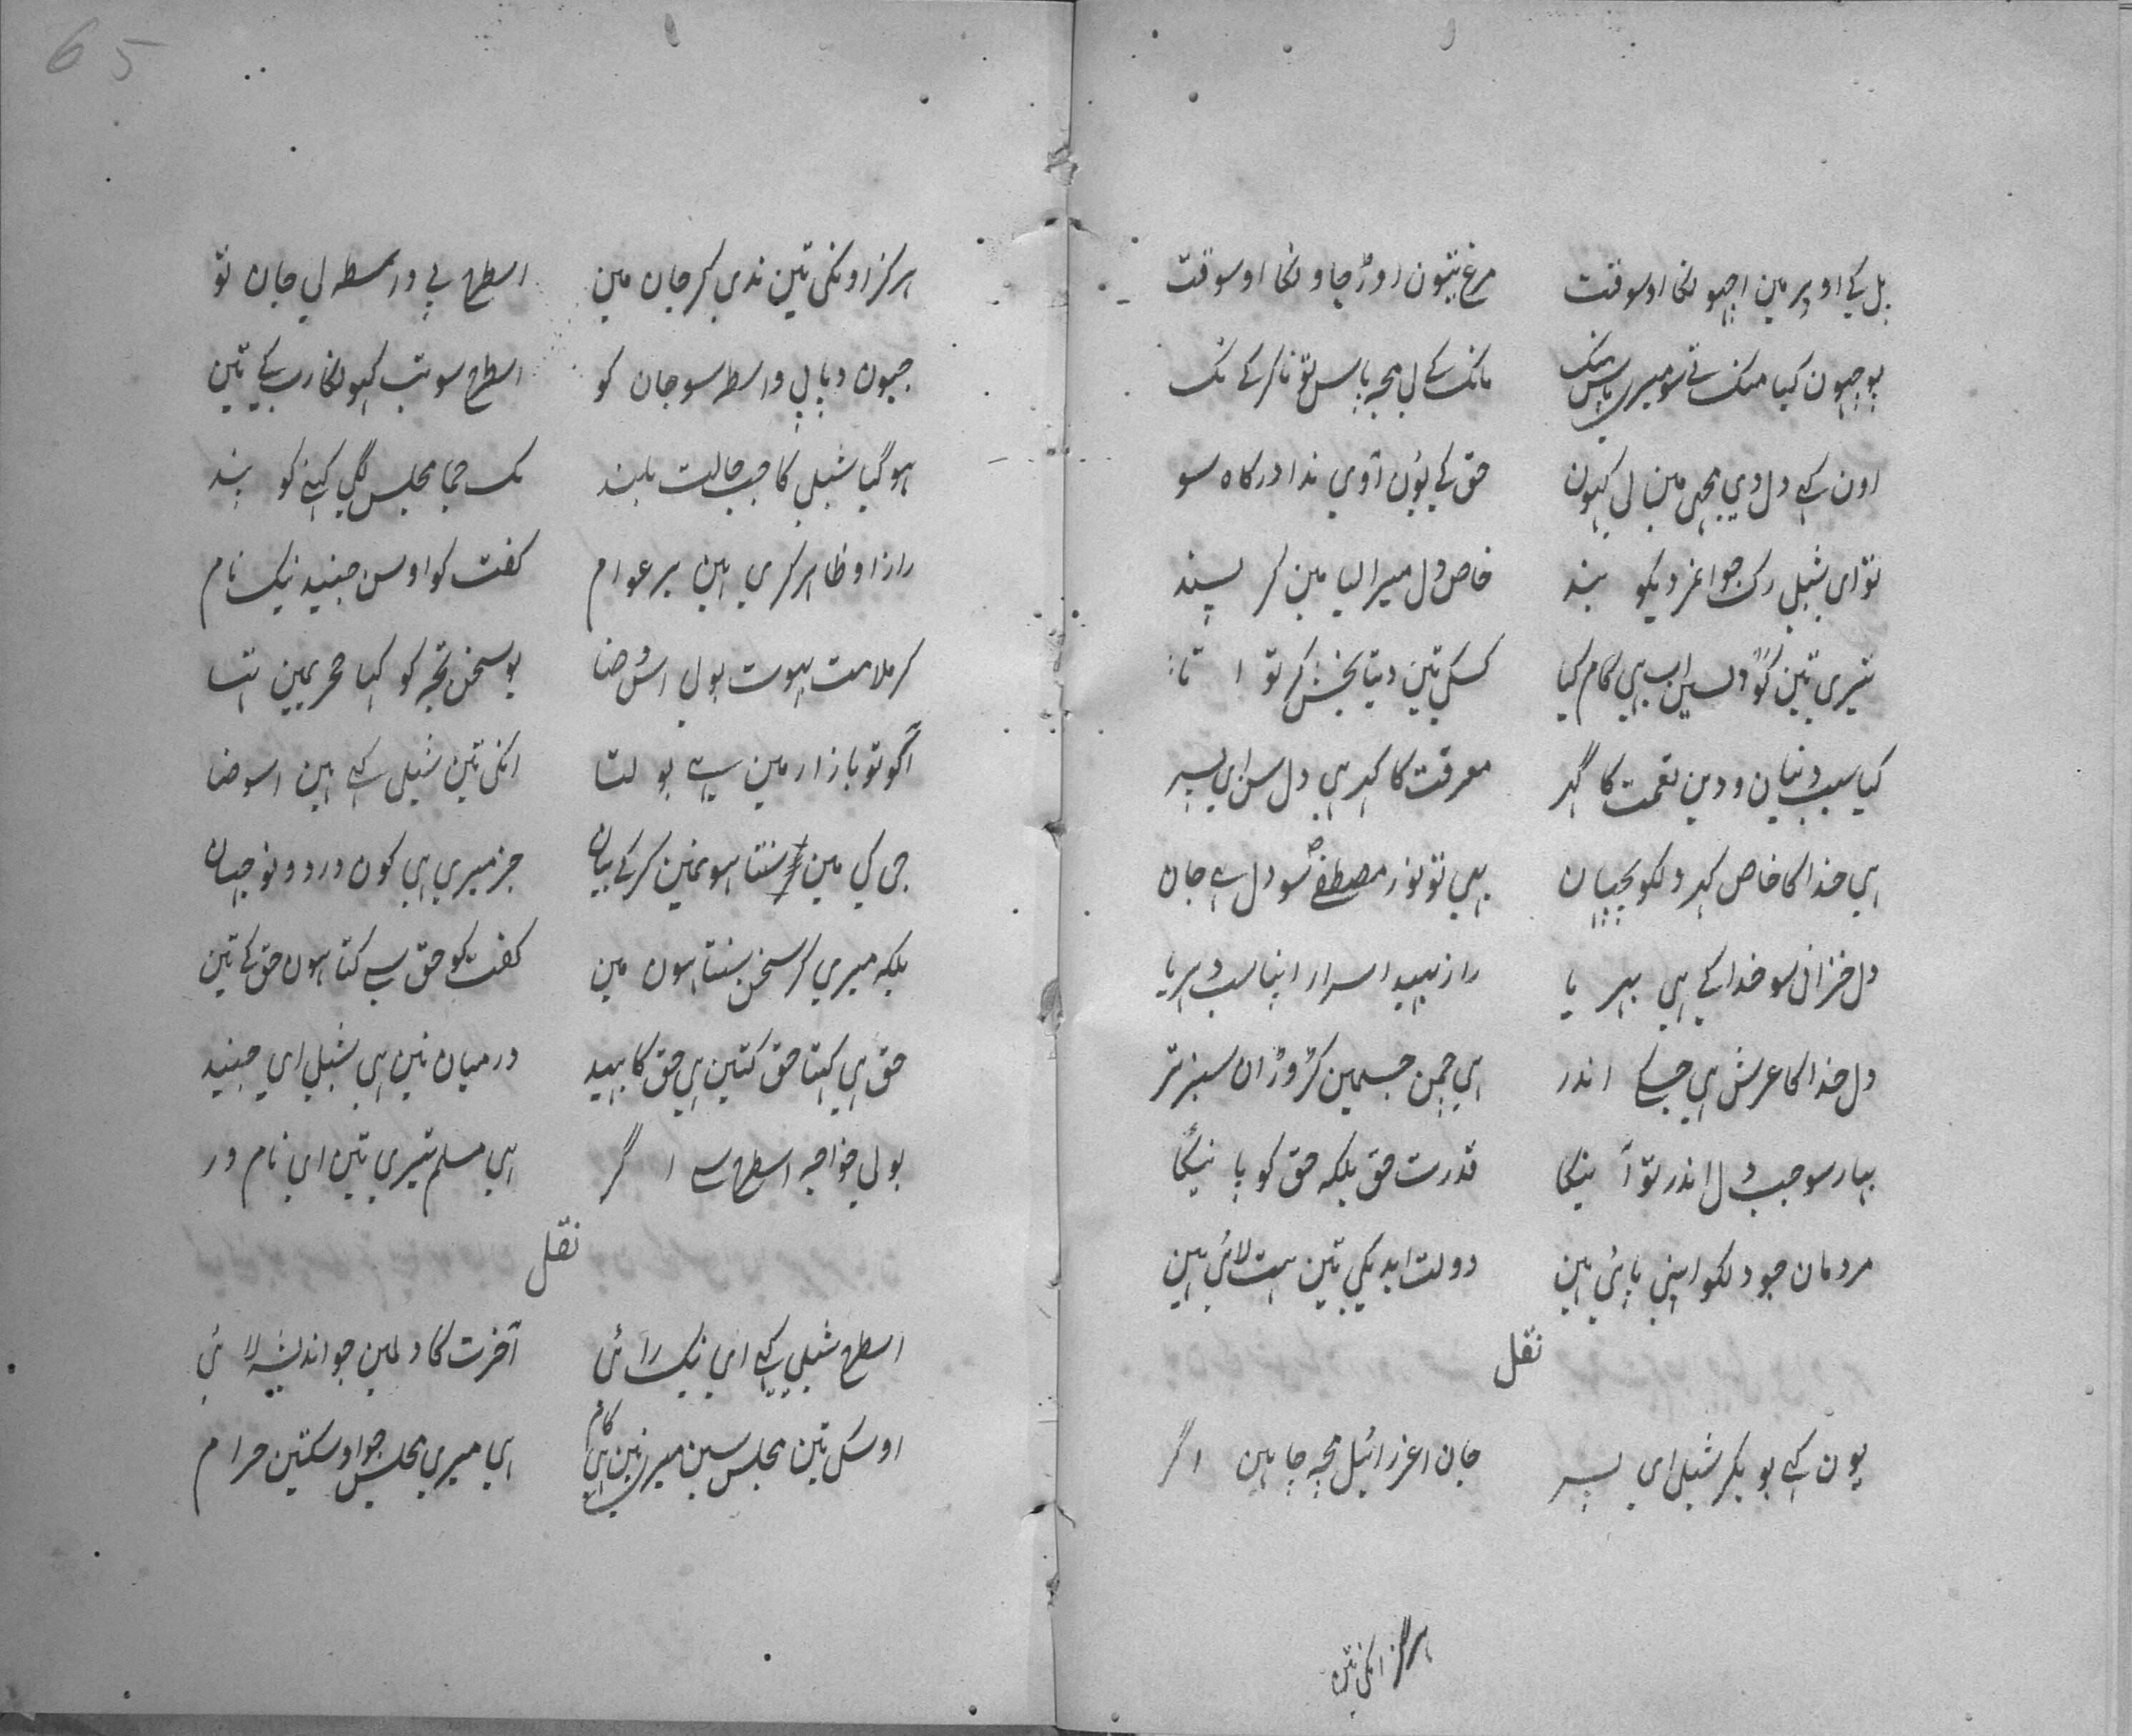 پل کے اوپر مین اچھونگا اوسوقت مرغ نیون اوڑ جاونگا اوسوقت
پوچھون کیا منک تے سو میری پاس منک مانک کے لی مجہ پاس تو نا کر کے نک
اون کہے دل دی مجہی مین لی کہون حق کے یون آوی ندا درکاہ سو
تو ای شبلی رک جوانمرد یکو بند خاص دل میرا لیا مین کر پسند
تیری تین کو دلسین اب ہی کام کیا کسکی تین دیتا بخش کر تو ا تا
کیا سبب دنیان و دین نعمت کا گہر معرفت کا گہر ہی دل سن ای پسر
ہی خدا کا خاص گہر دلکو پچہان ہی تو نور مصطفےٰ سو دل ہے جان
دل خزانی سو خدا کے ہی بہر یا راز بہید اسرار اپنا سب دہریا
دل خدا کا عرش ہی جسکے اندر ہی چمن جسمین کڑوڑان سبز تر
بہار سو جب دل اندر تو آ ئیکا قدرت حق بلکہ حق کو پا ئیگا
مردمان جو دلکو اپنی پائی ہین دولت ابدیکی تین ہت لائی ہین
نقل
یون کہے بو بکر شبلی ای پسر جان اعزرائیل مجہ چاہین اگر
ہرگز انکی تین
ہرگز اونکی تین ندی کر جان مین اسطرح پے درمسطہ لی جان تو
جیون دیا لی واسطہ سو جان کو اسطرح سو تب کہونگا رب کے تین
ہو گیا شبلی کا جب حالت بلند یک جما مجلس لگی کہنے کو بند
راز او ظاہر کری ہین بر عوام کفت کو اوسن جنید نیک نام
کر ملامت بہوت بولی اس وضا یو سخن تجہ کو کہا محر یمین اتیا
آگو تو بازار مین ہے بولتا انکی تین شبلی کہے ہین اسوضا
جی کی مین سنتا ہو نمین کر کے بیان جز میری ہی کون در دو نو جہان
بلکہ میری کر سخن سنتا ہون مین کفت کو حق ہے کتا ہون حق کے تین
حق ہی کہتا حق کتین ہی حق کا بہید درمیان نین ہی شبلی ای جنید
بولی خواجہ اسطرح ہے اگر ہی مسلم تیری تین ای نام ور
نقل
اسطرح شبلی کہے ای نیک رائی آخرت کا دلمین جو اندیشہ لائی
اوسکی تین مجلس سین میری نین ہی کام ہی میری مجلس جو اوسکتین حرام
65